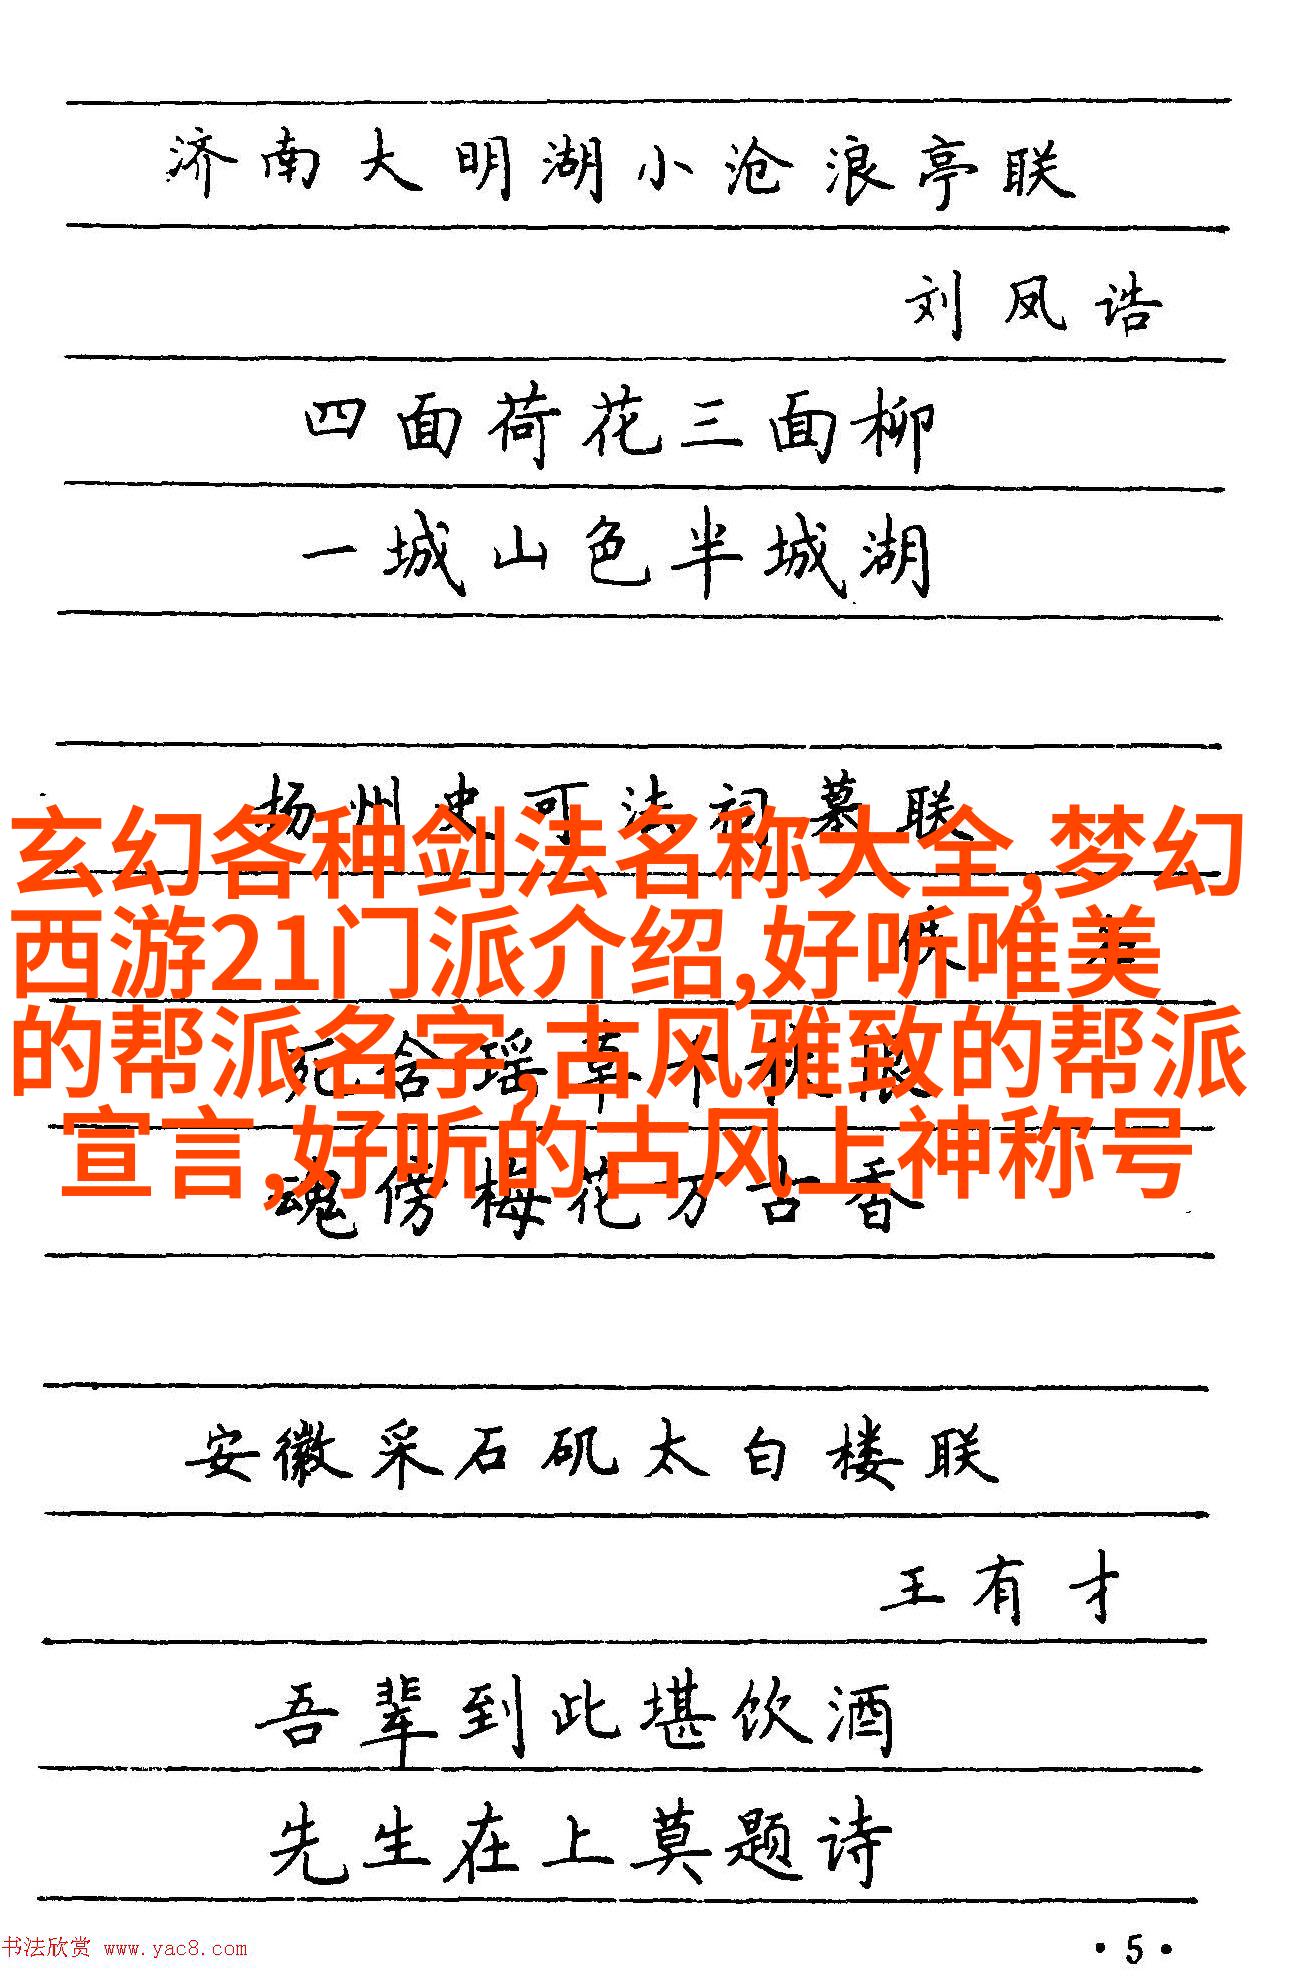 济南大明湖小沧浪亭联
刘凤诰
四面荷花三面柳
一城山色半城湖
扬州史可法祠墓联
玄幻各种剑法名称大全,梦幻
西游21门派介绍,好听唯美
的帮派名字,古风雅致的帮派
宣言,好听的古风上神称号
魂傍梅花万古香
安徽采石矶太白楼联
王有才
吾辈到此堪饮酒
先生在上莫题诗
书法欣赏 www.yac8.com
·5·